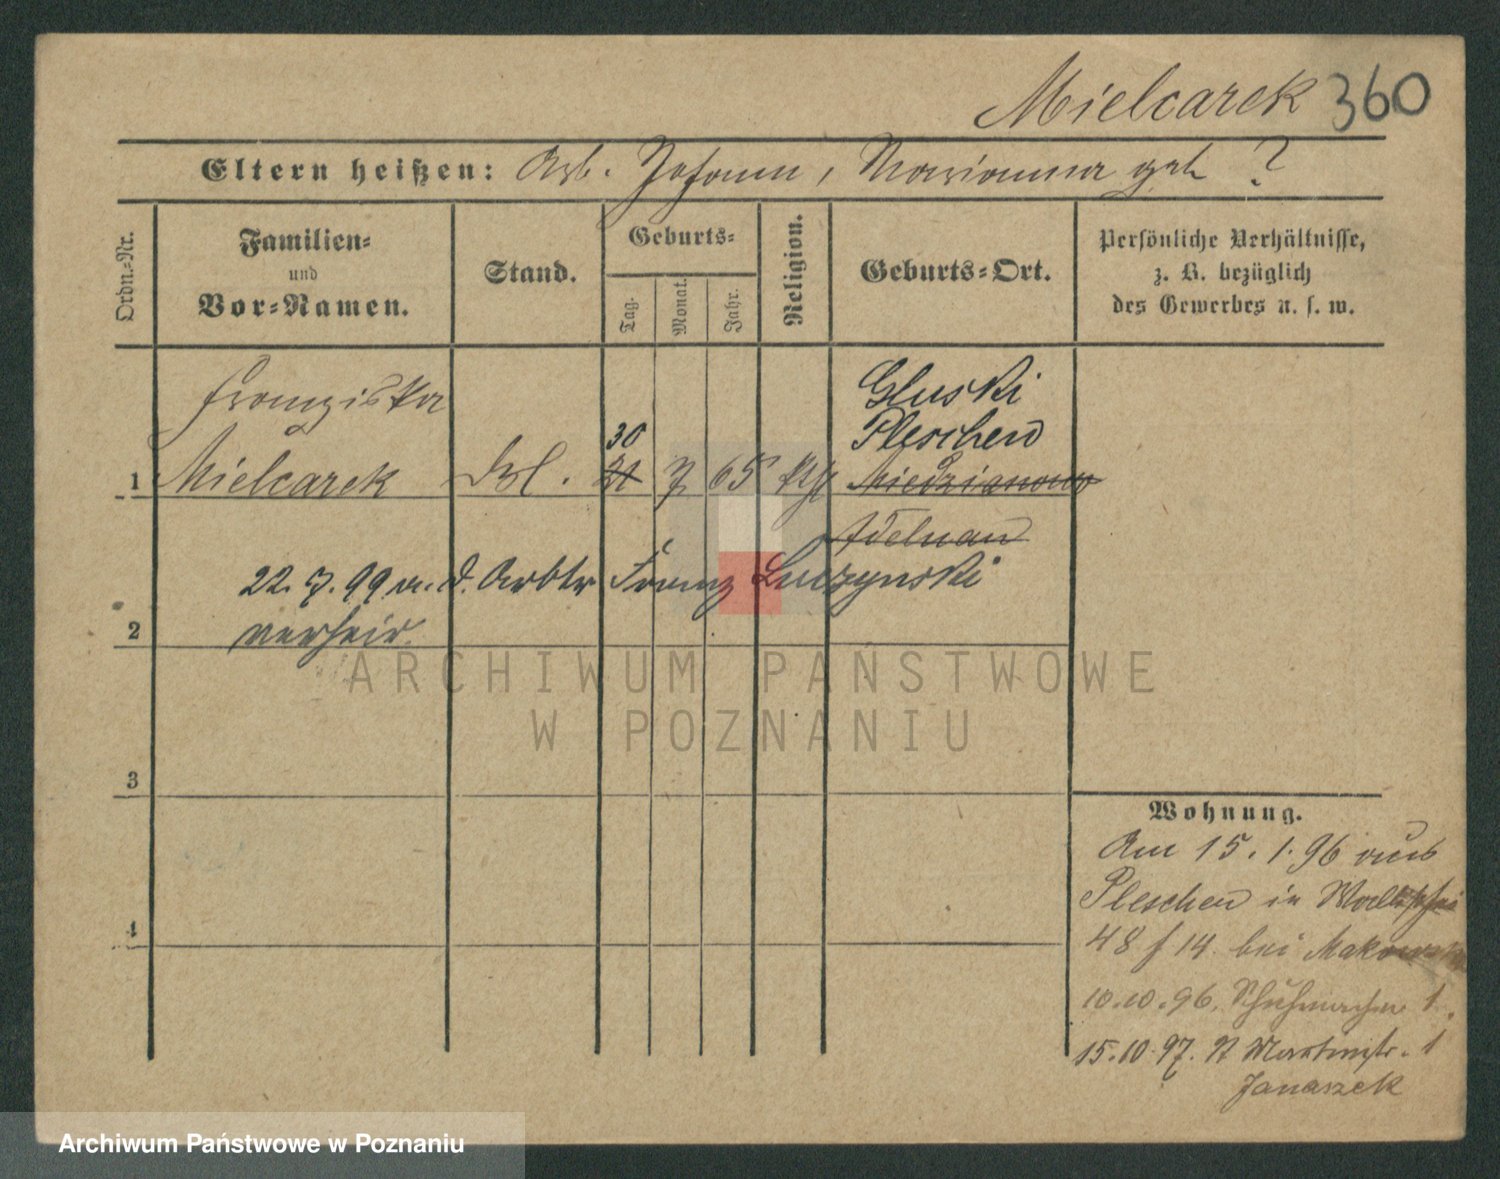 Mielcarek 360
Eltern heißen: Arb. Johann, Marianna geb ?
Ordn.-Nr.
Familien-
und
Vor-Namen.
Stand.
Geburts-
Tag.
Monat.
Jahr.
Religion.
Geburts-Ort.
Persönliche Verhältnisse,
z. B. bezüglich
des Gewerbes u. s. w.
Franziska
Gluski
30
Pleschen
1 Mielcarek 21 7 65 kth Miedzianowo
Adelnau
22. 7. 99 m. d. Arbtr Franz Luczynski
2 verheir.
3
4
Wohnung.
Am 15. 1. 96 aus
Pleschen in
48 f 14 bei
10.10.96. Schuhmacher 1.
15.10.97. St Martinstr. 1
Janaszek
ARCHIWUM PAŃSTWOWE
W POZNANIU
Archiwum Państwowe w Poznaniu